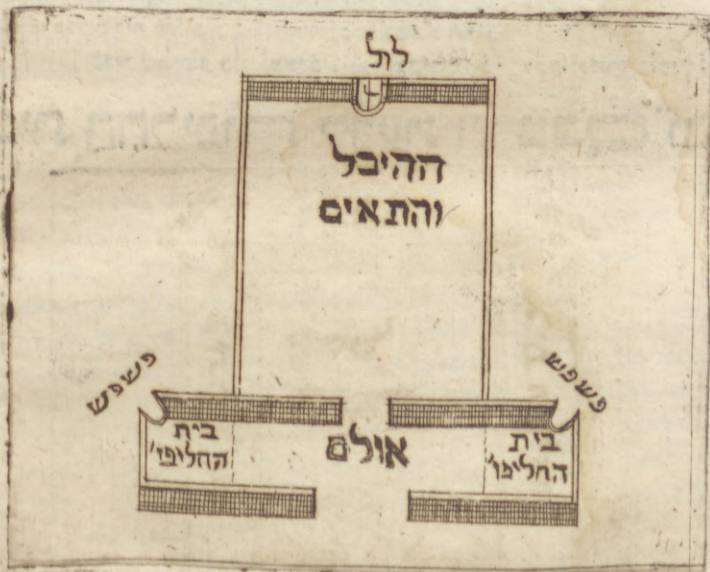 לול
ההיכל
והתאים
פשפש
פשפש
בית
החליפו'
אולם
בית
החליפו'